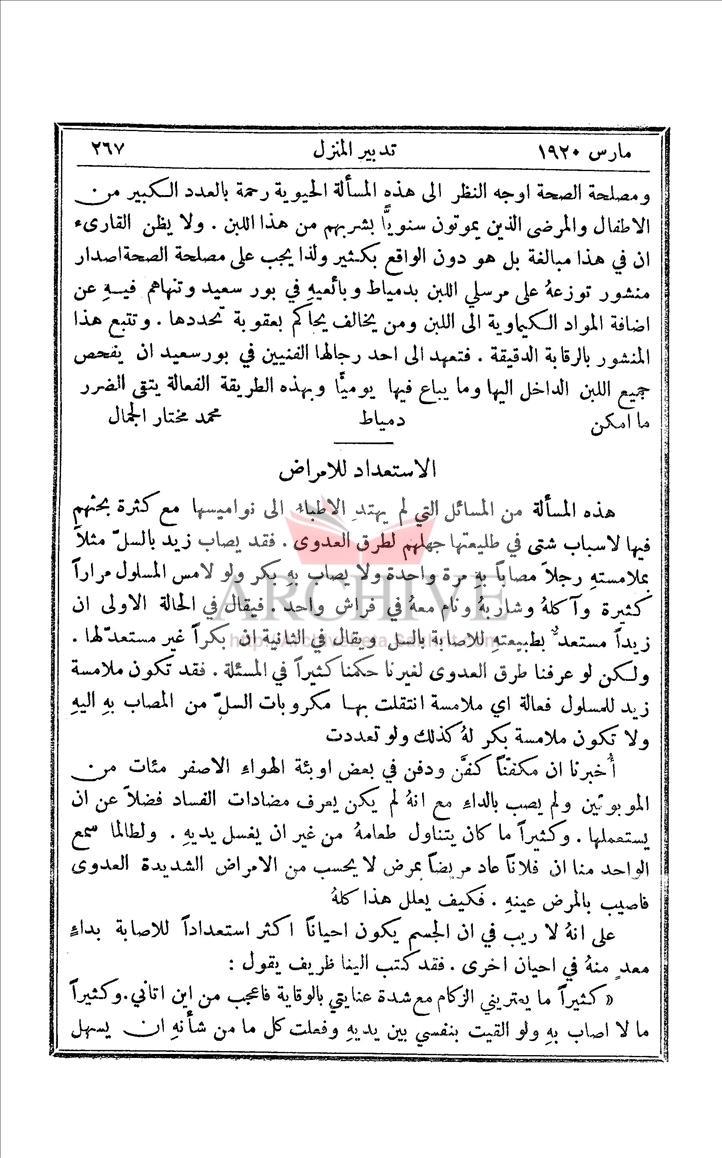 مارس ١٩٢٠ تدبير المنزل ٢٦٧
ومصلحة الصحة اوجه النظر الى هذه المسألة الحيوية رحمة بالعدد الكبير من
الاطفال والمرضى الذين يموتون سنويًّا بشربهم من هذا اللبن . ولا يظن القارىء
ان في هذا مبالغة بل هو دون الواقع بكثير ولذا يجب على مصلحة الصحة اصدار
منشور توزعهُ على مرسلي اللبن بدمياط وبائعيهِ في بور سعيد وتنهاهم فيهِ عن
اضافة المواد الكيماوية الى اللبن ومن يخالف يحاكم بعقوبة تحددها . وتتبع هذا
المنشور بالرقابة الدقيقة . فتعهد الى احد رجالها الفنيين في بورسعيد ان يفحص
جميع اللبن الداخل اليها وما يباع فيها يوميًّا وبهذه الطريقة الفعالة يتقى الضرر
ما امكن دمياط محمد مختار الجمال
الاستعداد للامراض
هذه المسألة من المسائل التي لم يهتدِ الاطباء الى نواميسها مع كثرة بحثهم
فيها لاسباب شتى في طليعتها جهلهم لطرق العدوى . فقد يصاب زيد بالسلّ مثلاً
بملامستهِ رجلاً مصاباً بهِ مرة واحدة ولا يصاب بهِ بكر ولو لامس المسلول مراراً
كثيرة وآكلهُ وشاربهُ ونام معهُ في فراش واحد . فيقال في الحالة الاولى ان
زيداً مستعدٌّ بطبيعتهِ للاصابة بالسل ويقال في الثانية ان بكراً غير مستعدّ لها .
ولكن لو عرفنا طرق العدوى لغيرنا حكمنا كثيراً في المسئلة . فقد تكون ملامسة
زيد للمسلول فعالة اي ملامسة انتقلت بها مكروبات السلّ من المصاب بهِ اليهِ
ولا تكون ملامسة بكر لهُ كذلك ولو تعددت
أُخبرنا ان مكفنّاً كفَّن ودفن في بعض اوبئة الهواء الاصفر مئات من
الموبوئين ولم يصب بالداء مع انهُ لم يكن يعرف مضادات الفساد فضلاً عن ان
يستعملها . وكثيراً ما كان يتناول طعامهُ من غير ان يغسل يديهِ . ولطالما سمع
الواحد منا ان فلاناً عاد مريضاً بمرض لا يحسب من الامراض الشديدة العدوى
فاصيب بالمرض عينهِ . فكيف يعلل هذا كلهُ
على انهُ لا ريب في ان الجسم يكون احياناً اكثر استعداداً للاصابة بداءٍ
معدٍ منهُ في احيان اخرى . فقد كتب الينا ظريف يقول :
« كثيراً ما يعتريني الزكام مع شدة عنايتي بالوقاية فاعجب من اين اتاني . وكثيراً
ما لا اصاب بهِ ولو القيت بنفسي بين يديهِ وفعلت كل ما من شأنهِ ان يسهل
ARCHIVE